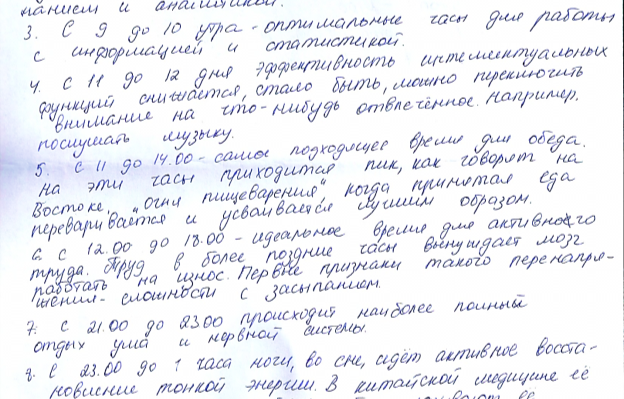 панием и аналитикой.
3. С 9 до 10 утра - оптимальные часы для работы
с информацией и статистикой.
4. С 11 до 12 дня эффективность интеллектуальных
функций снижается, стало быть, можно переключить
внимание на что-нибудь отвлечённое. Например,
послушать музыку.
5. С 11 до 14.00 - самое подходящее время для обеда.
На эти часы приходится пик, как говорят на
Востоке, "огня пищеварения", когда принятая еда
переваривается и усваивается лучшим образом.
6. С 12.00 до 18.00 - идеальное время для активного
труда. Труд в более поздние часы вынуждает мозг
работать на износ. Первые признаки такого перенапря-
жения - сложности с засыпанием.
7. С 21.00 до 23.00 происходит наиболее полный
отдых ума и нервной системы.
8. С 23.00 до 1 часа ночи, во сне, идёт активное восста-
новление тонкой энергии. В китайской медицине её